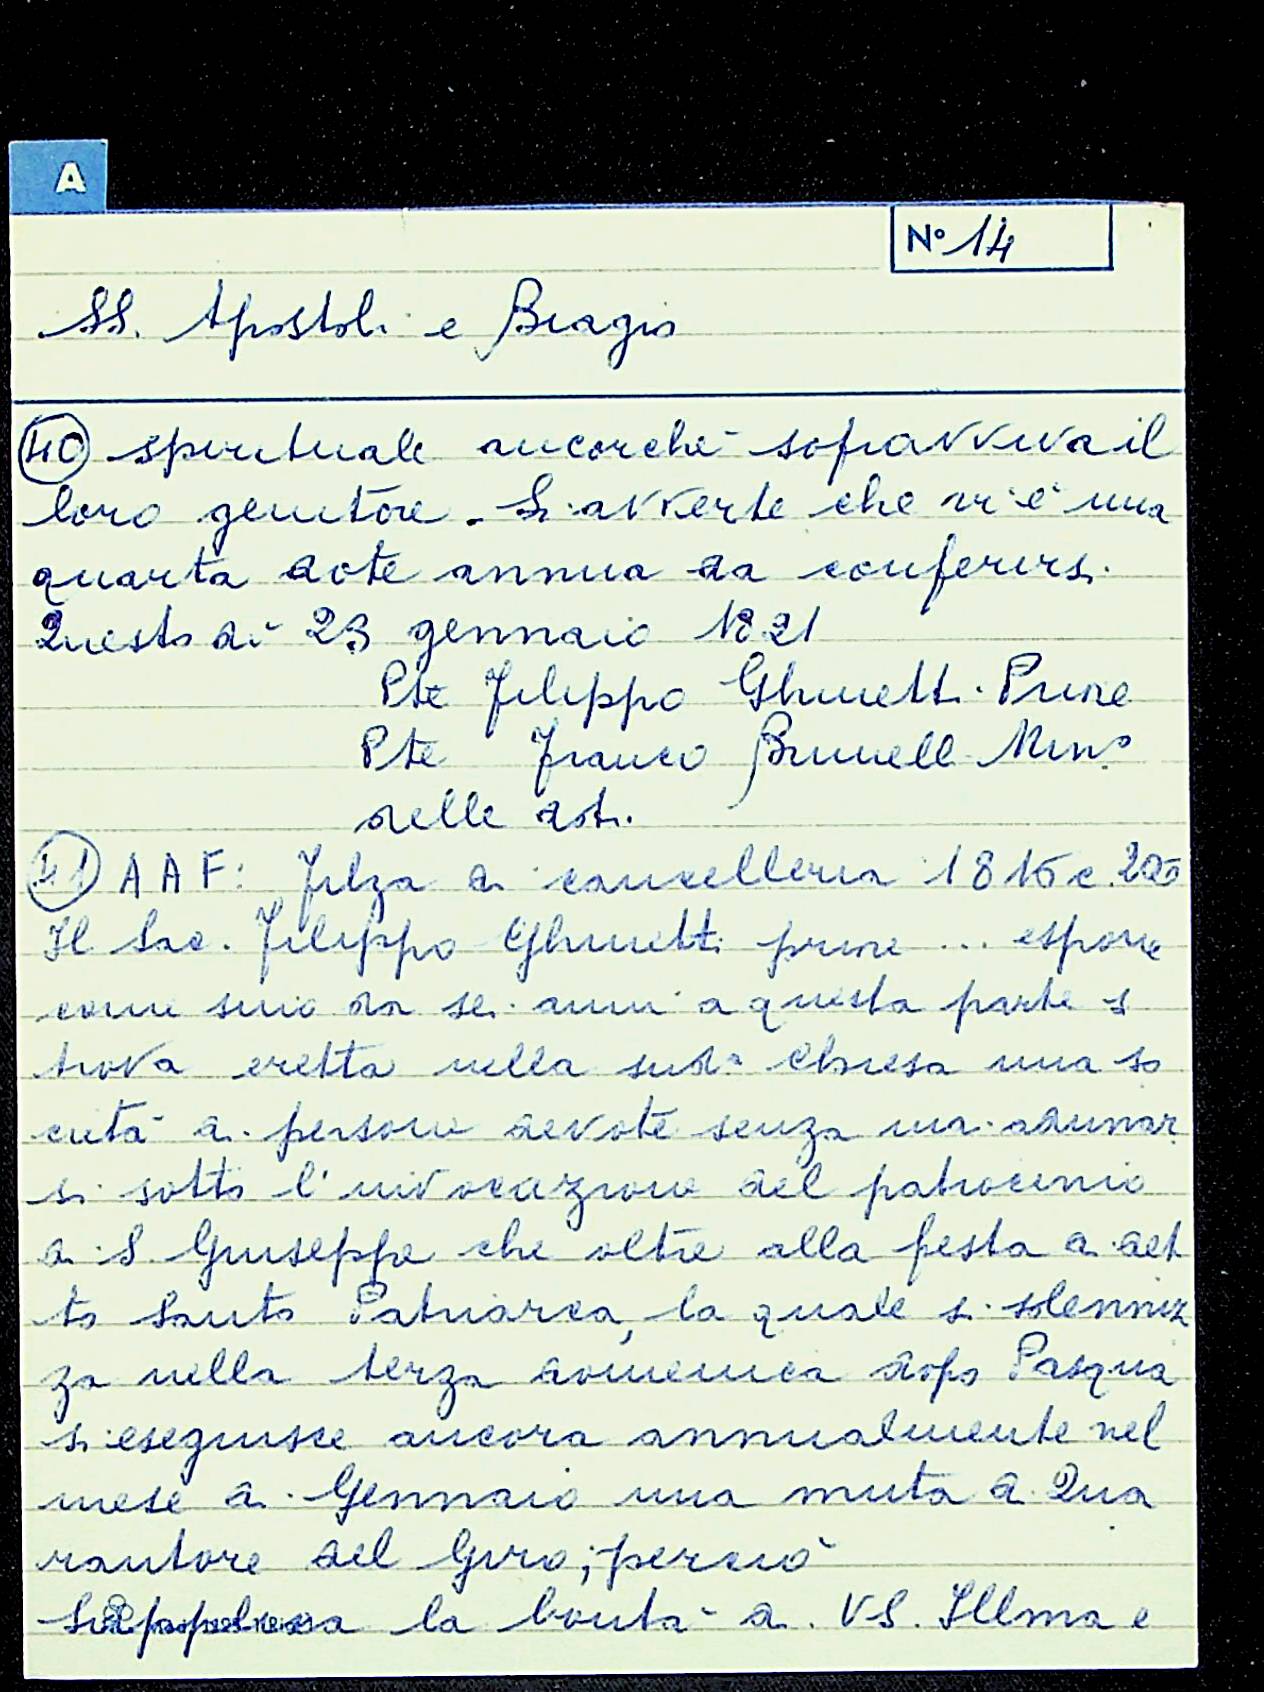 A
N° 14
SS. Apostoli e Biagio
40 spirituale ancorchè sopravviva il
loro genitore. Si avverte che vi è una
quarta dote annua da conferirsi.
Questo dì 23 gennaio 1821
Pte Filippo Ghinetti Priore
Pte Franco Brunelli Min°
delle doti.
41 AAF: Filza di cancelleria 1816 c. 20
Il Sac. Filippo Ghinetti priore ... espone
come sino da sei anni a questa parte si
trova eretta nella sudª Chiesa una so
cietà di persone devote senza mai adunar
si sotto l'invocazione del patrocinio
di S. Giuseppe che oltre alla festa di det
to Santo Patriarca, la quale si solenniz
za nella terza domenica dopo Pasqua
si eseguisce ancora annualmente nel
mese di Gennaio una muta di Qua
rantore del Giro; perciò
Supplica la bontà di VS. Illma e